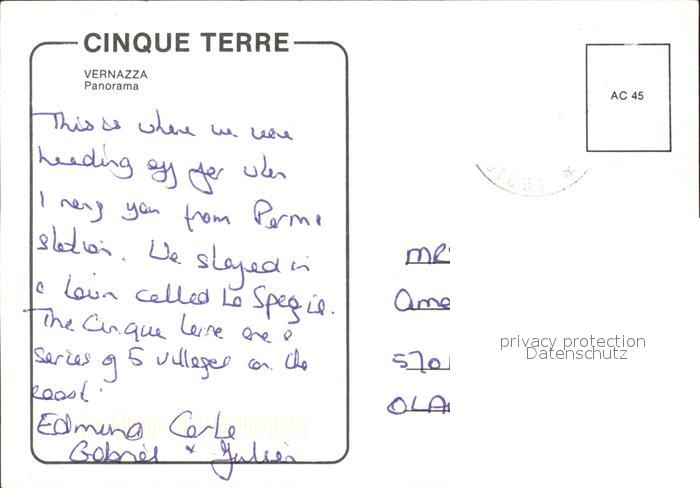 CINQUE TERRE
VERNAZZA
Panorama
AC 45
This is where we were
heading off for when
I rang you from Parma
station. We stayed in
a town called La Spezia.
The Cinque Terre are a
series of 5 villages on the
coast.
Edmund Carla
Gabriel + Julian
MR
Ame
5701
OLA
privacy protection
Datenschutz